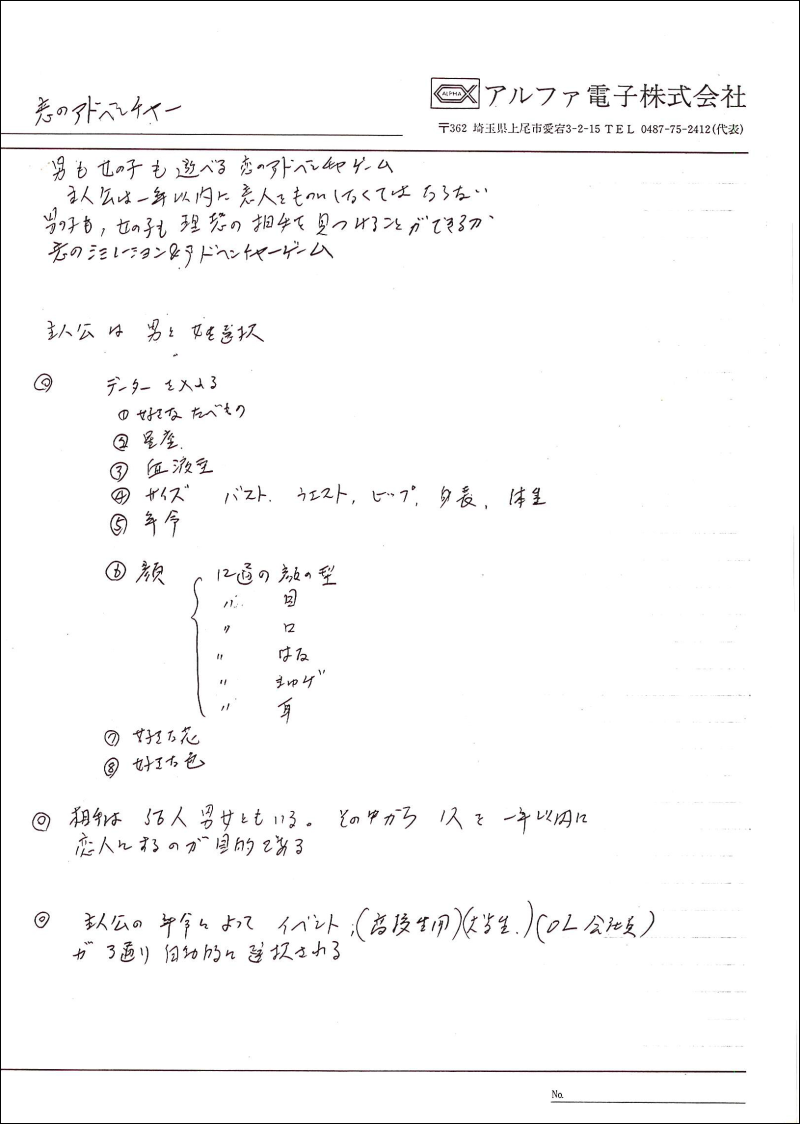 恋のアドベンチャー
ALPHA アルファ電子株式会社
〒362 埼玉県上尾市愛宕3-2-15 TEL 0487-75-2412(代表)
男も女の子も遊べる恋のアドベンチャゲーム
主人公は一年以内に恋人をものにしなくてはならない
男の子も,女の子も理想の相手を見つけることができるか
恋のシミレーション&アドベンチャーゲーム
主人公は 男と女を選択
◎ データーを入よる
① 好きな たべもの
② 星座
③ 血液型
④ サイズ バスト. ウエスト, ヒップ, 身長, 体重
⑤ 年令
⑥ 顔 12通の顔の型
〃 目
〃 口
〃 はな
〃 まゆげ
〃 耳
⑦ 好きな花
⑧ 好きな色
◎ 相手は 56人 男女ともいる。その中から 1人を 一年以内に
恋人にするのが目的である
◎ 主人公の年令によって イベント,(高校生用)(大学生.)(OL 会社員)
が 3通り 自動的に選択される
No.